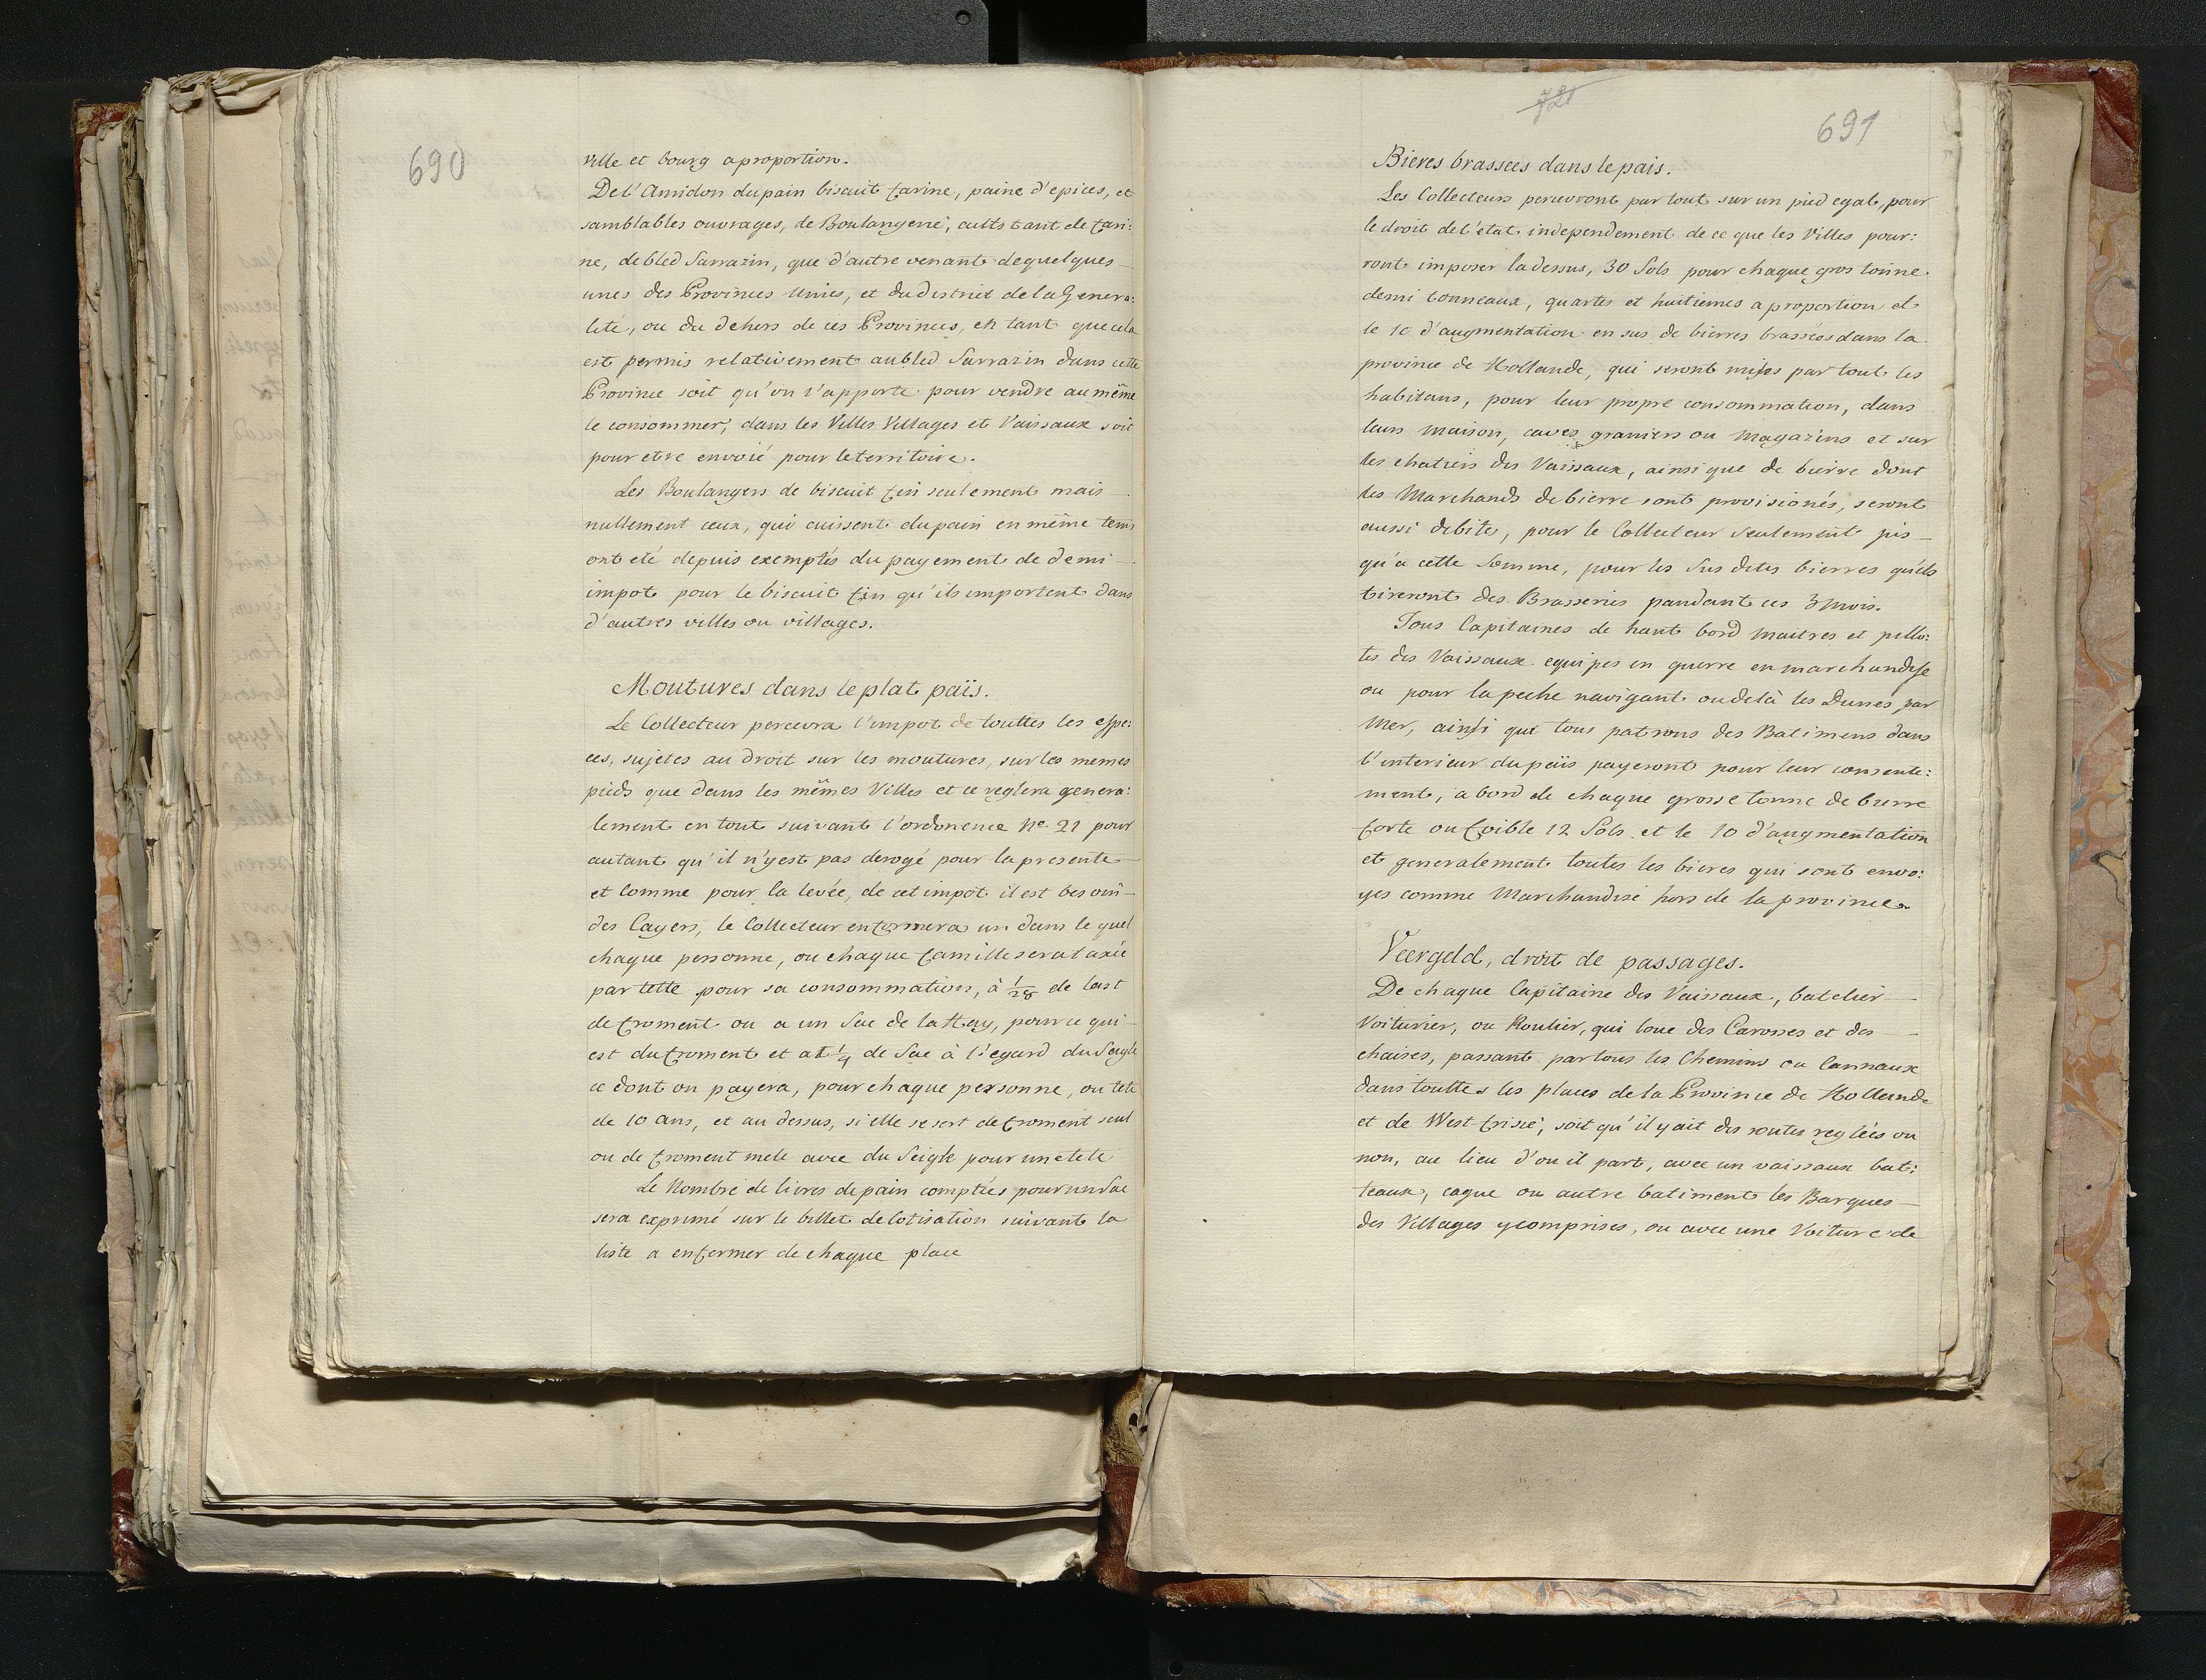 690
ville et bourg a proportion.
De l'Amidon du pain biscuit farine, paine d'epices, et
samblables ouvrages, de Boulangerie, cuits tant de fari:
ne, de bled Sarrazin, que d'autre venant de quelques
unes des Provinces Unies, et du district de la Genera:
lité, ou du dehors de ces Provinces, en tant que cela
est permis relativement au bled Sarrazin dans cette
Province soit qu'on l'apporte pour vendre au même
le consommer, dans les Villes Villages et Vaissaux soit
pour etre envoié pour le territoire.
Les Boulangers de biscuit fin seulement mais
nullement ceux, qui cuissent du pain en même tems
ont eté depuis exemptés du payement de demi
impot pour le biscuit fin qu'ils importent dans
d'autres villes ou villages.
Moutures dans le plat païs.
Le Collecteur percevra l'impot de touttes les espe:
ces, sujetes au droit sur les moutures, sur les memes
pieds que dans les mêmes Villes et ce reglera genera:
lement en tout suivant l'ordonence No 21 pour
autant qu'il n'y est pas derogé pour la presente
et comme pour la levée, de cet impot il est besoin
des Cayers, le Collecteur enformera un dans le quel
chaque personne, ou chaque famille sera taxée
par tette pour sa consommation, à 1/28 de last
de froment ou a un Sac de la Hay, pour ce qui
est du froment et at 1/4 de Sac à l'egard du Seigle
ce dont on payera, pour chaque personne, ou tete
de 10 ans, et au dessus, si elle se sert de froment seul
ou de froment mele avec du Seigle pour une tete
Le Nombre de livres de pain comptées pour un Sac
sera exprimé sur le billet de Cotisation suivant la
liste a enformer de chaque place
721
691
Bieres brassees dans le pais.
Les Collecteurs percevront par tout sur un pied egal, pour
le droit de l'état independement de ce que les Villes pour:
ront imposer la dessus, 30 Sols pour chaque gros tonne
demi tonneaux, quartes et huitiemes a proportion et
le 10 d'augmentation en sus de bierres brassées dans la
province de Hollande, qui seront mises par tout les
habitans, pour leur propre consommation, dans
leurs maison, caves graniers ou Magazins et sur
les chatiers des Vaissaux, ainsi que de bierre dont
les Marchands de bierre sont provisionés, seront
aussi debites, pour le Collecteur seulement jus
qu'a cette Somme, pour les Sus dites bierres qu'els
tireront des Brasseries pandant ces 3 mois.
Tous Capitaines de haut bord maitres et pillo:
tes des Vaissaux equipes en guerre en marchandise
ou pour la peche navigant oudelà les Dunes par
Mer, ainsi que tous patrons des Batimens dans
l'interieur du païs payeront pour leur consente:
ment, a bord de chaque grosse tonne de bierre
forte ou foible 12 Sols et le 10 d'augmentation
et generalement toutes les bieres qui sont envo:
yes comme Marchandise hors de la province.
Veergeld, droit de passages.
De chaque Capitaine des Vaissaux, batelier
Voiturier, ou Roulier, qui loue des Carosses et des
chaises, passant par tous les Chemins ou Cannaux
dans touttes les places de la Province de Hollande
et de West-frisie, soit qu'il y ait des routes reglées ou
non, au lieu d'ou il part, avec un vaissaux bat:
teaux, cague ou autre batiment les Barques
des Villages y comprises, ou avec une Voiture de